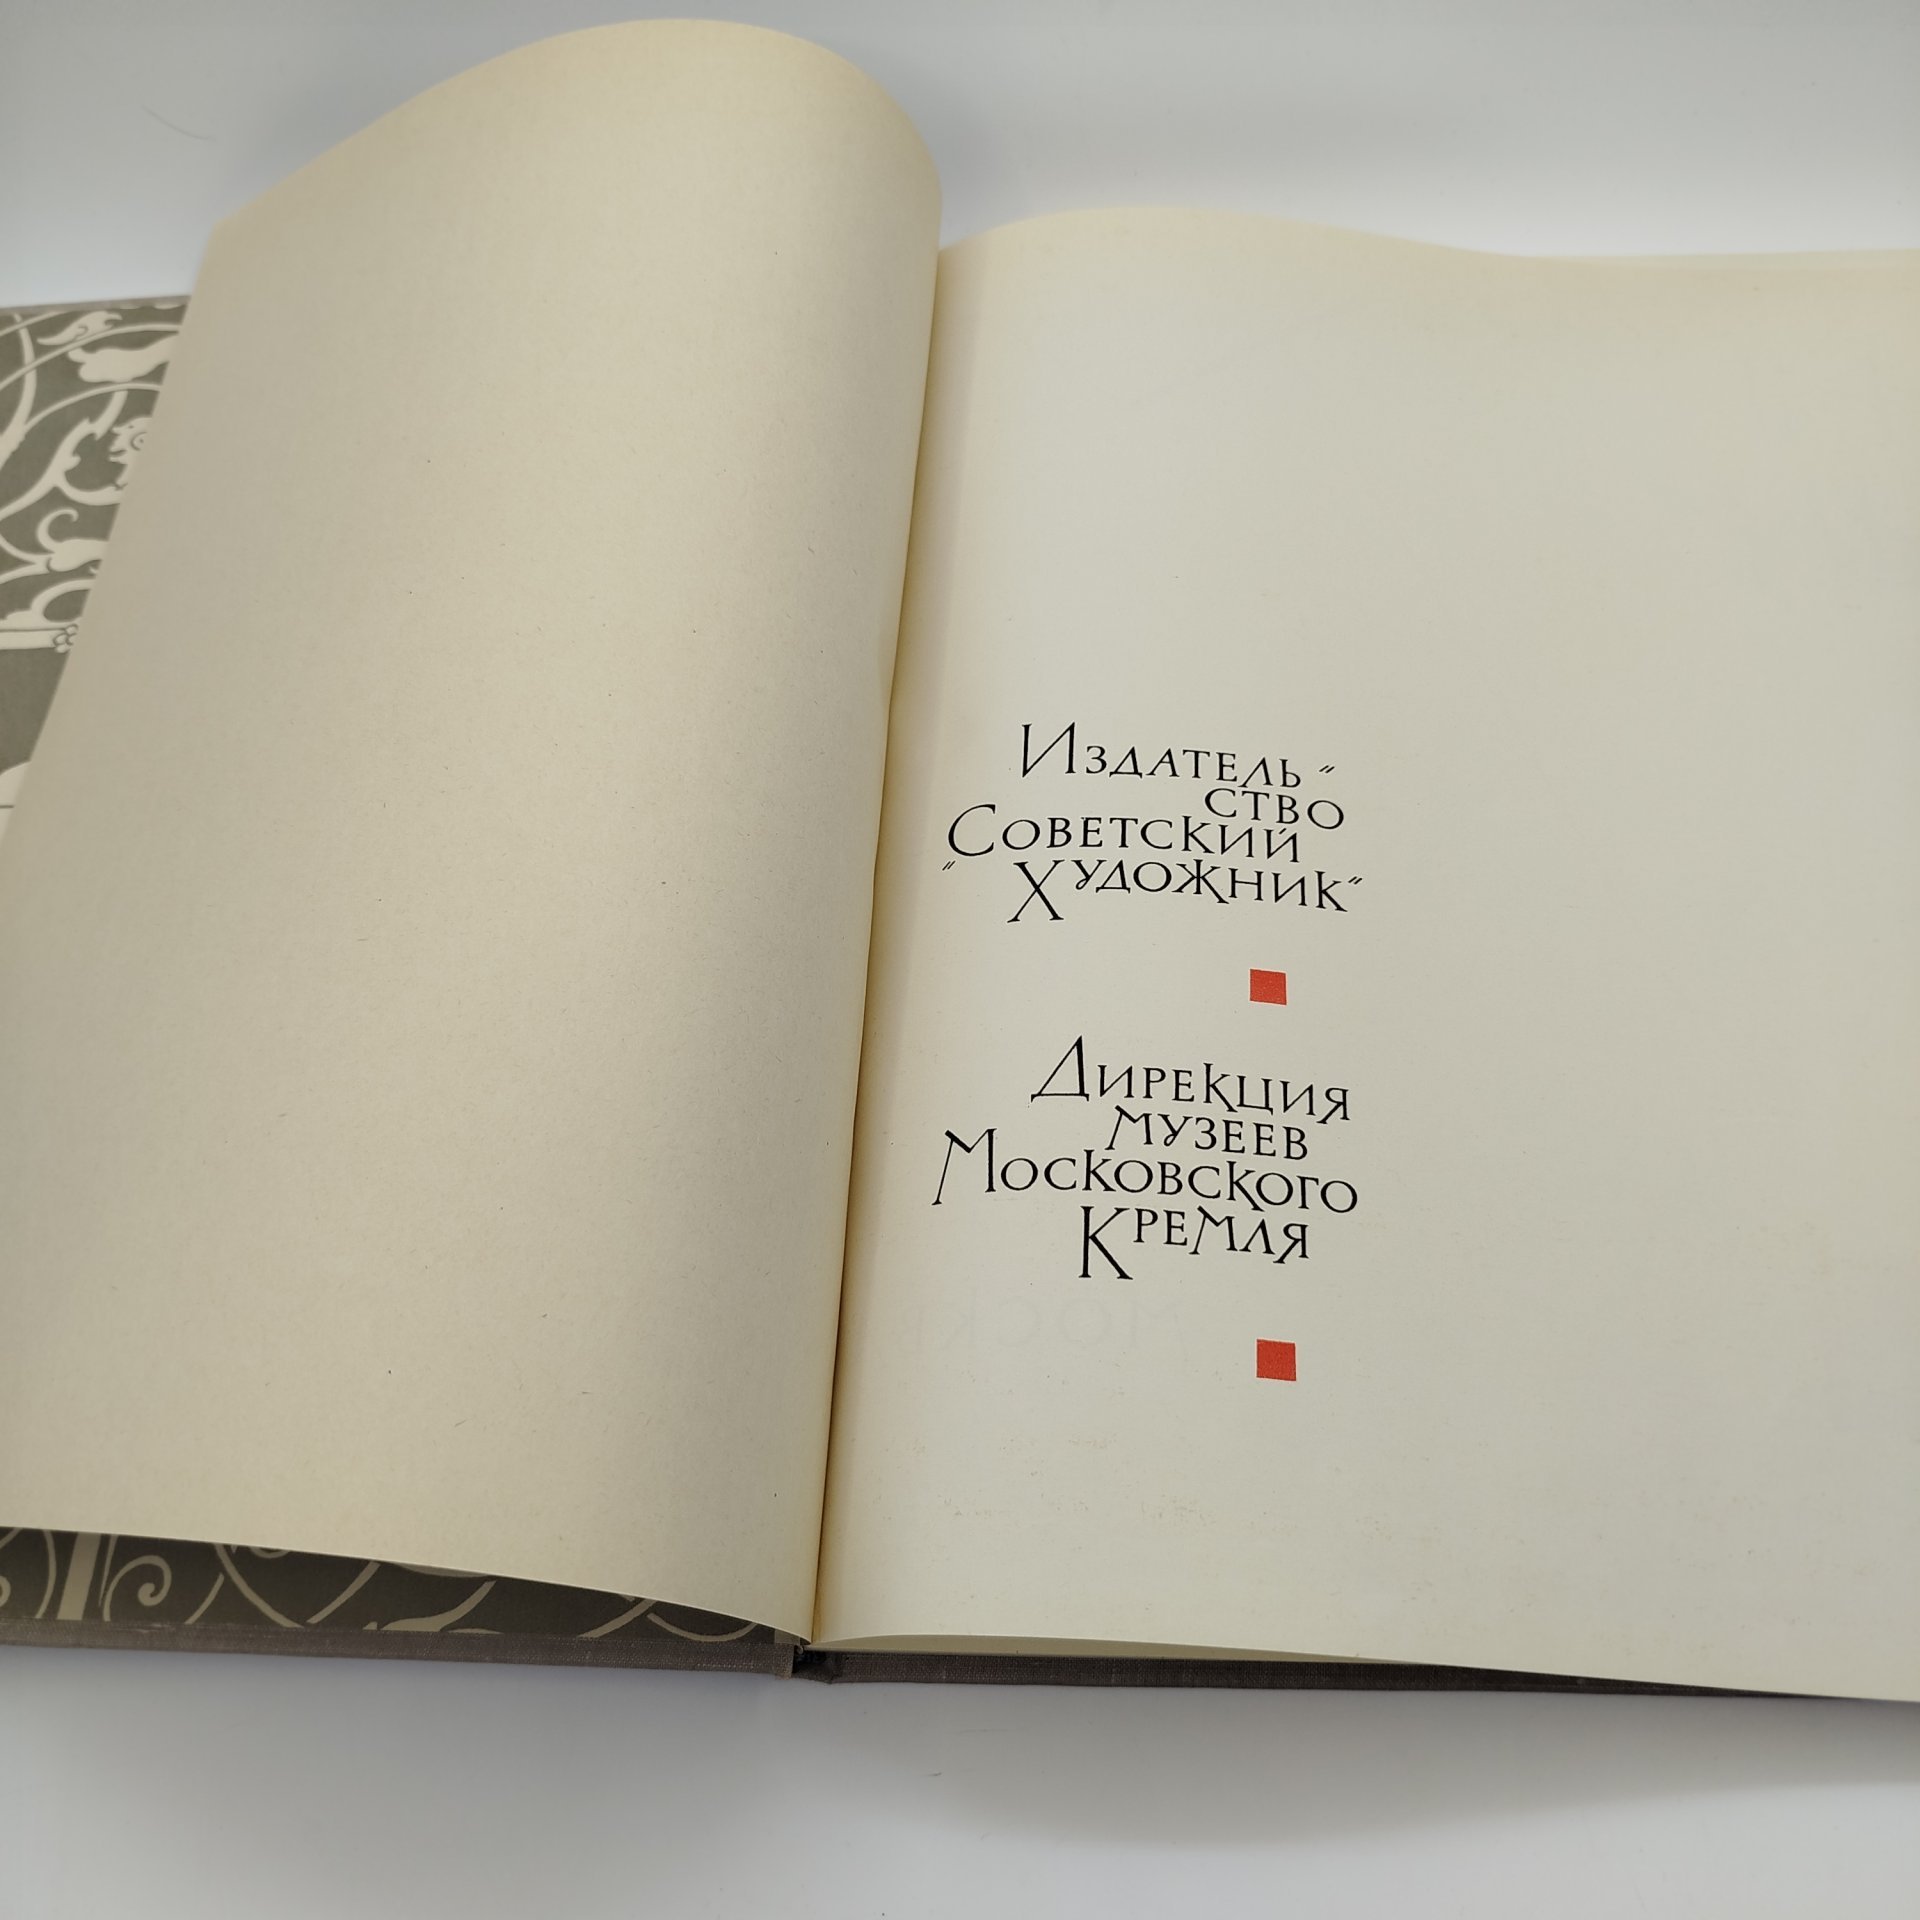 Издатель〃
ство
Советский
〃Художник〃
Дирекция
музеев
Московского
Кремля